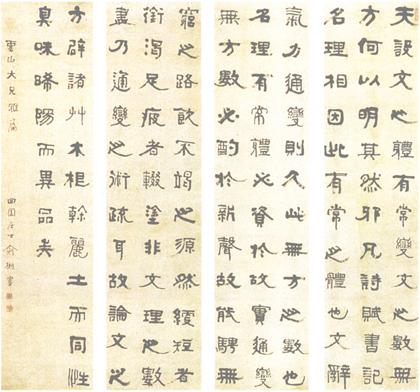 夫設文之體有常變文之數無
方何以明其然邪凡詩賦書記
名理相因此有常之體也文辭
氣力通變則久此無方之數也
名理有常體必資於故實通變
無方數必酌於新聲故能騁無
窮之路飲不竭之源然綆短者
銜渴足疲者輟塗非文理之數
盡乃通變之術疏耳故論文之
方辟諸艸木根榦麗土而同性
臭味晞陽而異品矣
山大兄雅屬 曲園居士俞樾書